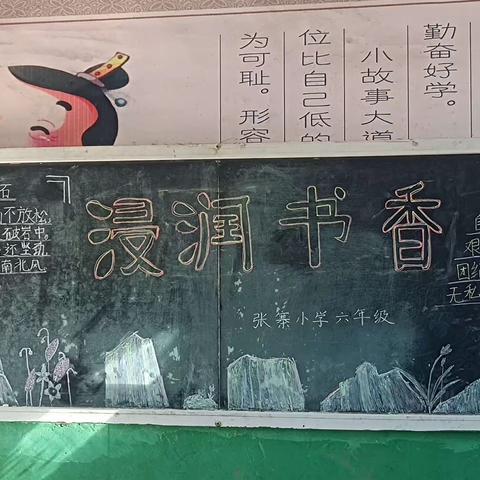 勤奋好学。
小故事大道
位比自己低的
为可耻。形容
石
不放松,
破岩中。
还坚劲,
南北风。
浸润书香
张寨小学六年级
艰
团结
无私